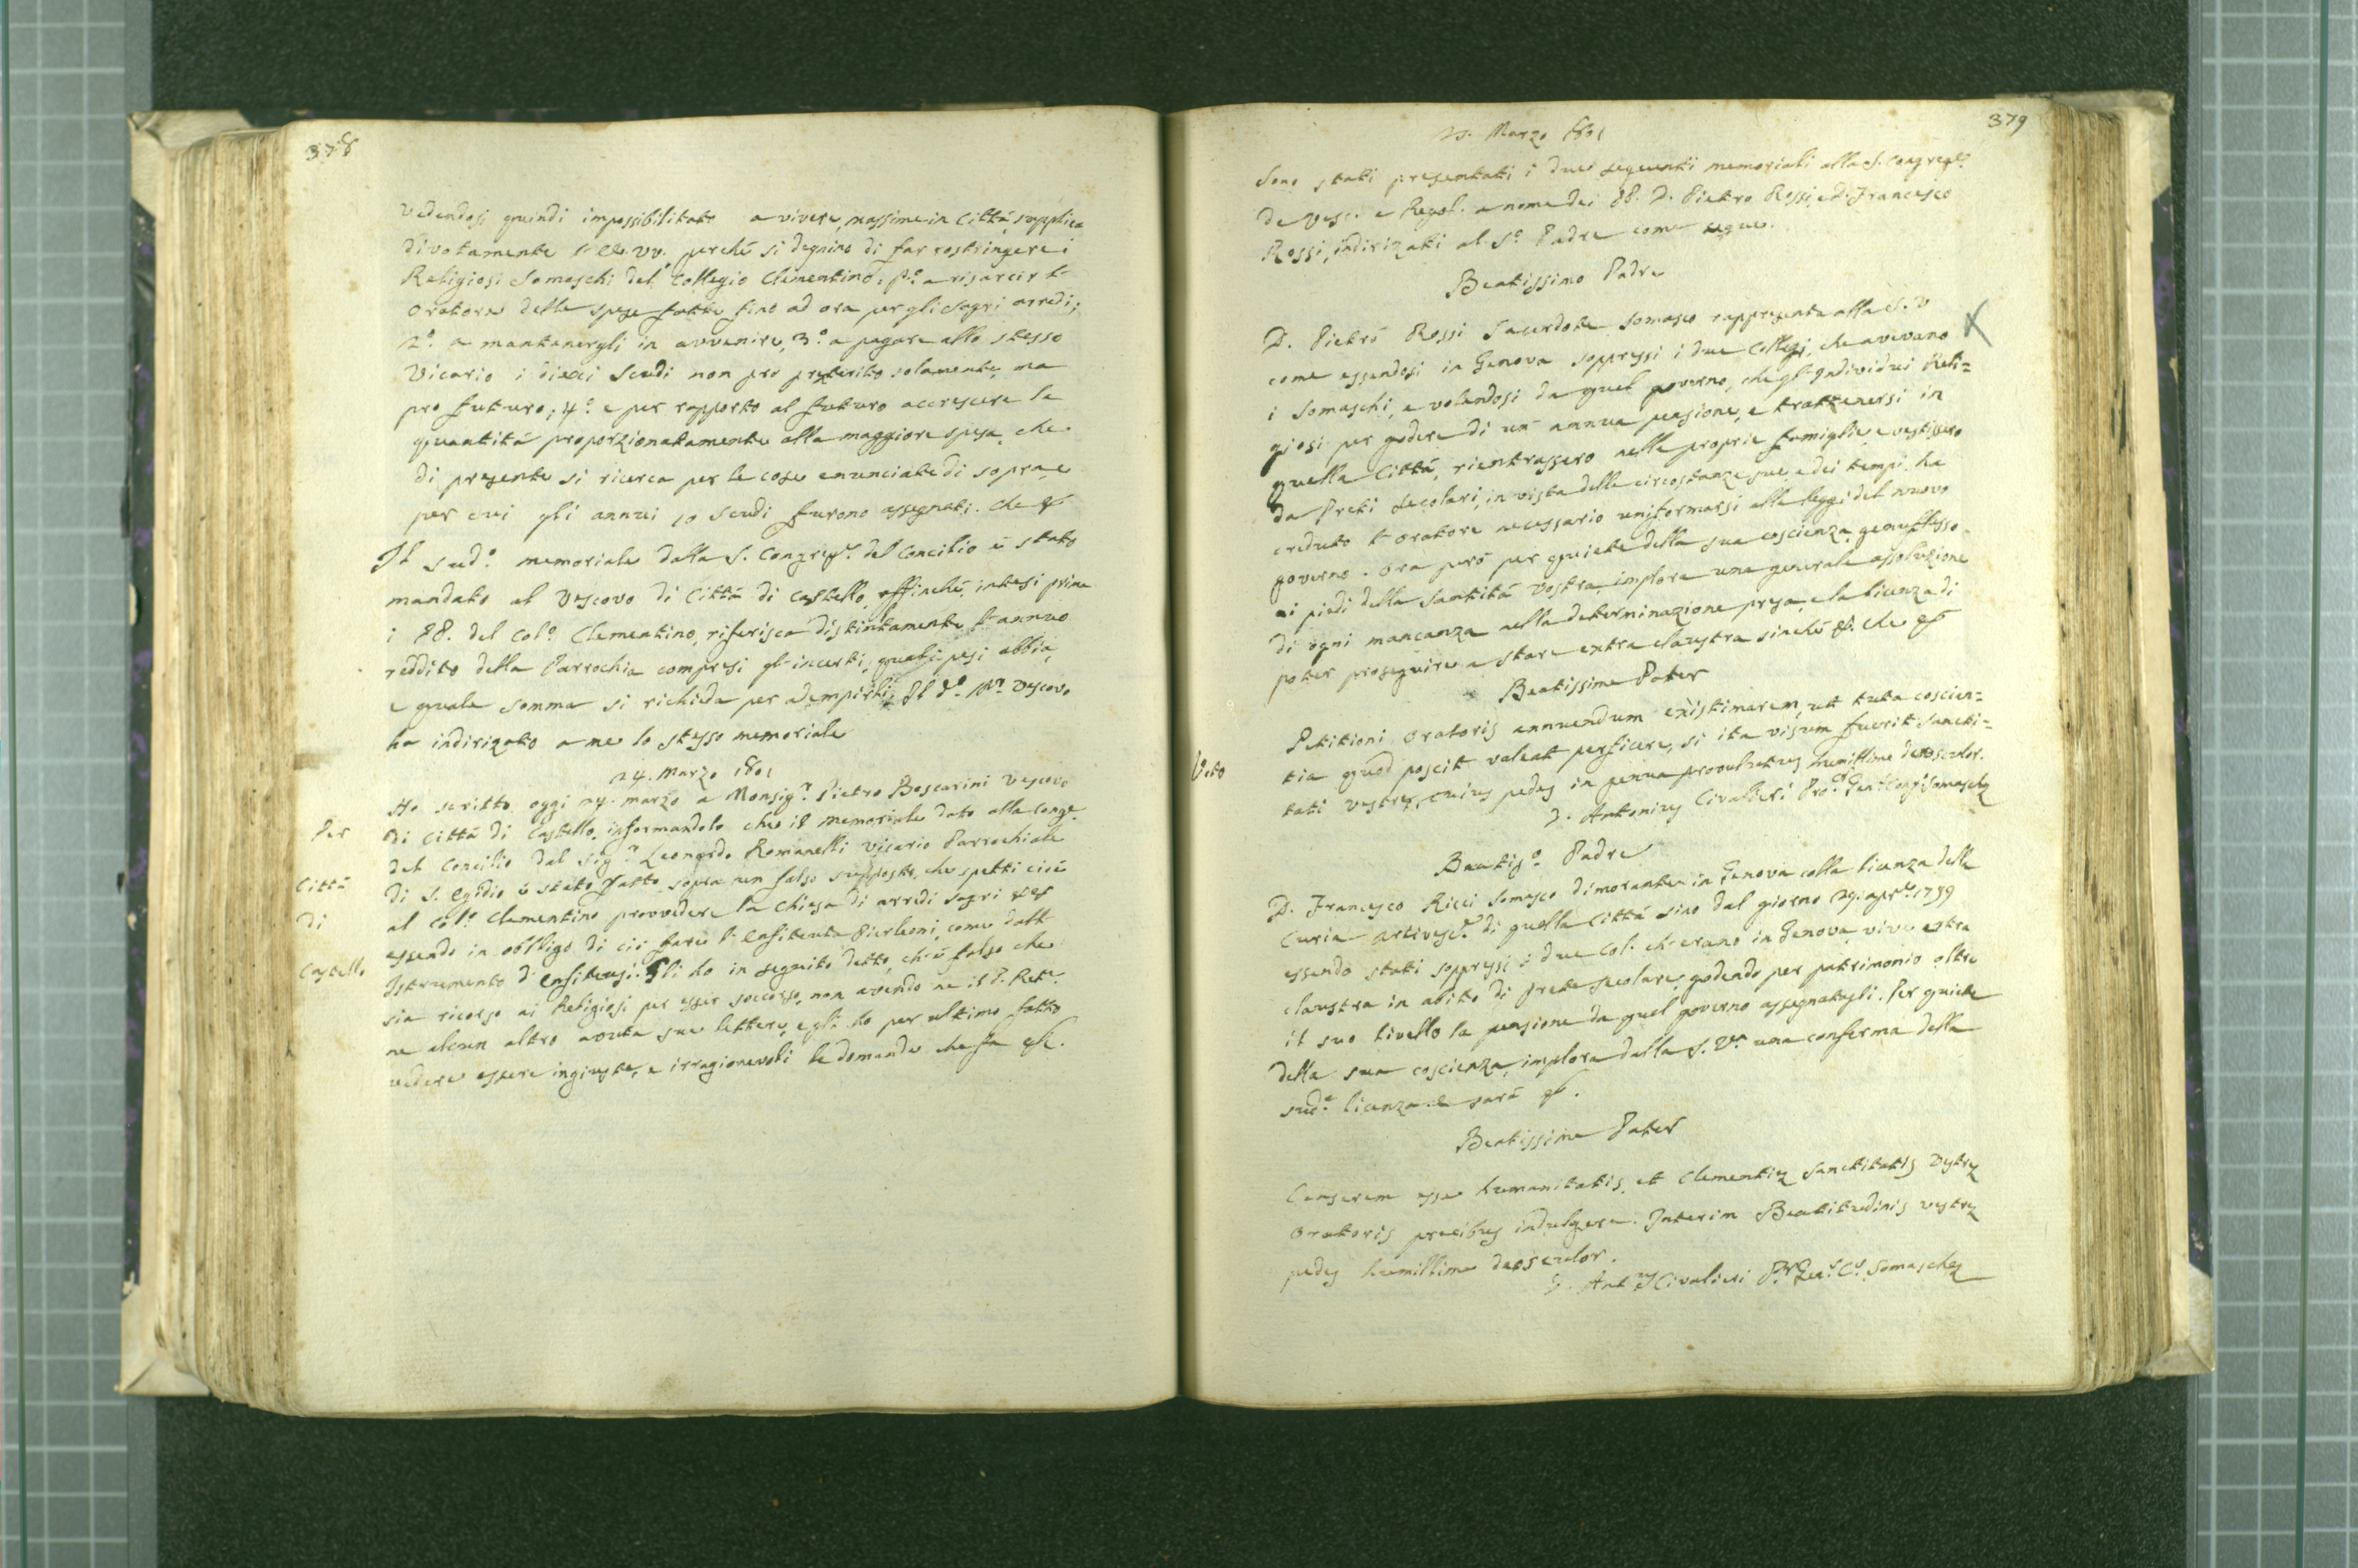 378
Vedendosi quindi impossibilitato a vivere, massime in Città, supplica
divotamente l'EE. VV. perché si degnino di far costringere i
Religiosi Somaschi del Collegio Clementino: P.o a risarcir l'
Oratore delle spese fatte fino ad ora per gli sagri arredi;
2.o a mantenergli in avvenire, 3.o a pagare allo stesso
Vicario i dieci Scudi non pro preterito solamente, ma
pro futuro; 4.o e per rapporto al futuro accrescere la
quantità proporzionatamente alla maggiore spesa, che
di presente si ricerca per le cose enunciate di sopra, e
per cui gli annui 10 Scudi furono assegnati. Che &
Il sud.o memoriale dalla S. Congreg.e del Concilio è stato
mandato al Vescovo di Città di Castello, affinché, intesi prima
i PP. del Col.o Clementino, riferisca distintamente l'annuo
reddito della Parrochia compresi gl'incerti, quali pesi abbia,
e quale somma si richieda per adempirli; Il d.o M.r Vescovo
ha indirizato a me lo stesso memoriale
24. Marzo 1801
Per
Città
di
Castello
Ho scritto oggi 24. marzo a Monsig.r Pietro Boscarini Vescovo
di Città di Castello, informandolo che il memoriale dato alla Cong.e
del Concilio dal Sig.r Leonardo Romanelli Vicario Parrochiale
di S. Egidio è stato fatto sopra un falso supposto, che spetti cioè
al Col.o Clementino provvedere la Chiesa di arredi sagri &c
essendo in obbligo di ciò fare l'Enfiteuta Pierleoni, come dall'
Istrumento d'Enfiteusi. Gli ho in seguito detto, ch'è falso che
sia ricorso ai Religiosi per esser soccorso, non avendo ne il P. Ret.e
ne alcun altro avuta sue lettere, e gli ho per ultimo fatto
vedere essere ingiuste, e irragionevoli le domande che fa &c.
379
25. Marzo 1801
Sono stati presentati i due seguenti memoriali alla S. Congreg.e
de Vesc. e Regol. a nome dei PP. D. Pietro Rossi, e D. Francesco
Rossi, indirizati al S.o Padre come segue.
Beatissimo Padre
D. Pietro Rossi Sacerdote Somasco rappresenta alla S. V
come essendosi in Genova soppressi i due Collegj, che avevano
i Somaschi, e volendosi da quel governo, che gl'Individui Reli=
giosi per godere di un' annua pensione, e trattenersi in
quella Città, rientrassero nelle proprie famiglie, e vestissero
da Preti Secolari, in vista delle circostanze sue, e dei tempi ha
creduto l'Oratore necessario uniformarsi alle leggi del nuovo
governo. Ora però per quiete della sua coscienza genuflesso
ai piedi della Santità Vostra, implora una generale assoluzione
di ogni mancanza nella determinazione presa, e la licenza di
poter proseguire a stare extra claustra sinchè &. Che &
Beatissime Pater
Voto
Petitioni Oratoris annuendum existimarem, ut tuta coscien=
tia quod poscit valeat perficere, si ita visum fuerit Sancti=
tati Vestrę, cuius pedes in genua provolutus humillime deosculor.
D. Antonius Civalieri Pro.r Gen.lis Cong.s Somaschę
Beatis.o Padre
D. Francesco Ricci Somasco dimorante in Genova colla licenza della
Curia Arcivesc.e di quella Città sino dal giorno 29. apr.e 1799
essendo stati soppressi i due Col. ch'erano in Genova vive extra
claustra in abito di prete secolare, godendo per patrimonio oltre
il suo livello la pensione da quel governo assegnatagli. Per quiete
della sua coscienza, implora dalla S. V.a una conferma della
sud.a licenza e sarà &.
Beatissime Pater
Censerem esse humanitatis, et Clementię Sanctitatis Vestrę
Oratoris precibus indulgere. Interim Beatitudinis vestrę
pedes humillime deosculor.
D. Ant.us Civalieri P.r Gen.s C.s Somaschę